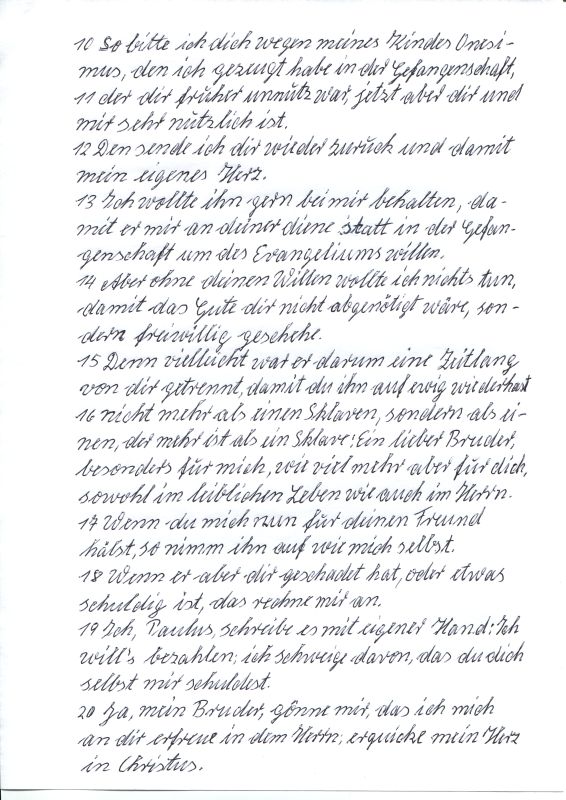 10 So bitte ich dich wegen meines Kindes Onesi-
mus, den ich gezeugt habe in der Gefangenschaft,
11 der dir früher unnütz war, jetzt aber dir und
mir sehr nützlich ist.
12 Den sende ich dir wieder zurück und damit
mein eigenes Herz.
13 Ich wollte ihn gern bei mir behalten, da-
mit er mir an deiner diene statt in der Gefan-
genschaft um des Evangeliums willen.
14 Aber ohne deinen Willen wollte ich nichts tun,
damit das Gute dir nicht abgenötigt wäre, son-
dern freiwillig geschehe.
15 Denn vielleicht war er darum eine Zeitlang
von dir getrennt, damit du ihn auf ewig wiederhast
16 nicht mehr als einen Sklaven, sondern als ei-
nen, der mehr ist als ein Sklave: Ein lieber Bruder,
besonders für mich, wie viel mehr aber für dich,
sowohl im leiblichen Leben wie auch im Herrn.
17 Wenn du mich nun für deinen Freund
hälst, so nimm ihn auf wie mich selbst.
18 Wenn er aber dir geschadet hat, oder etwas
schuldig ist, das rechne mir an.
19 Ich, Paulus, schreibe es mit eigener Hand: Ich
will's bezahlen; ich schweige davon, das du dich
selbst mir schuldest.
20 Ja, mein Bruder, gönne mir, das ich mich
an dir erfreue in dem Herrn; erquicke mein Herz
in Christus.